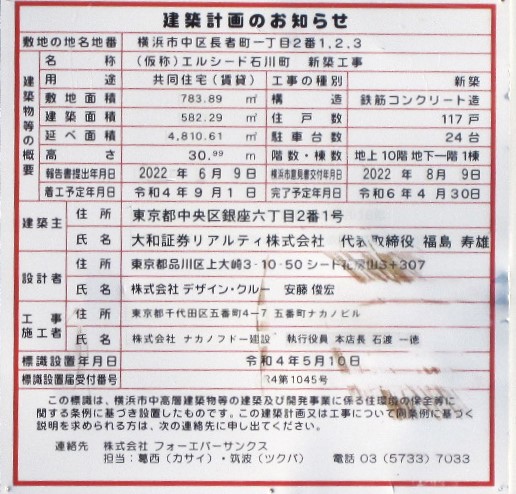 建築計画のお知らせ
敷地の地名地番 横浜市中区長者町一丁目2番1,2,3
建築物等の概要
名称 (仮称)エルシード石川町 新築工事
用途 共同住宅(賃貸) 工事の種別 新築
敷地面積 783.89 ㎡ 構造 鉄筋コンクリート造
建築面積 582.29 ㎡ 住戸数 117戸
延べ面積 4,810.61 ㎡ 駐車台数 24台
高さ 30.99 m 階数・棟数 地上10階 地下一階 1棟
報告書提出年月日 2022年 6月 9日 横浜市意見書交付年月日 2022年 8月 9日
着工予定年月日 令和4年9月1日 完了予定年月日 令和6年4月30日
建築主 住所 東京都中央区銀座六丁目2番1号
氏名 大和証券リアルティ株式会社 代表取締役 福島 寿雄
設計者 住所 東京都品川区上大崎3-10-50 シード花房山3+307
氏名 株式会社 デザイン・クルー 安藤俊宏
工事施工者 住所 東京都千代田区五番町4-7 五番町ナカノビル
氏名 株式会社 ナカノフドー建設 執行役員 本店長 石渡 一徳
標識設置年月日 令和4年5月10日
標識設置届受付番号 R4第1045号
この標識は、横浜市中高層建築物等の建築及び開発事業に係る住環境の保全等に
関する条例に基づき設置したものです。この建築計画又は工事について同条例に基づく
説明を求められる方は、次の連絡先に申し出てください。
連絡先 株式会社 フォーエバーサンクス
担当:葛西(カサイ)・筑波(ツクバ) 電話 03 (5733) 7033